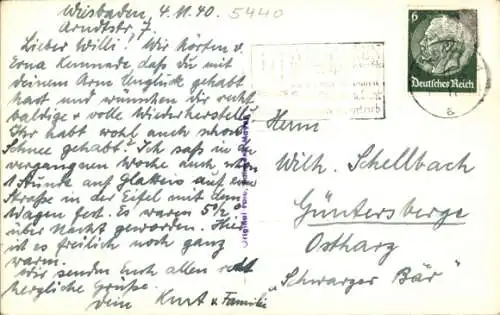 Wiesbaden, 4.11.40.
5440
Arndtstr. 7.
Lieber Willi! Wir hörten v.
Erna Kemnade daß du mit
deinem Arm Unglück gehabt
hast und wünschen dir recht
baldige & volle Wiederherstellg.
Ihr habt wohl auch schon
Schnee gehabt? Ich saß in der
vergangenen Woche auch schon
1 Stunde auf Glatteis auf einer
Straße in der Eifel mit dem
Wagen fest. Es waren 5½°
über Nacht geworden. Hier
ist es freilich noch ganz
warm.
Wir senden Euch allen recht
herzliche Grüße.
Dein Kurt & Familie
6
Deutsches Reich
a
Herrn
Wilh. Schellbach
Güntersberge
Ostharz
„Schwarzer Bär“
Original